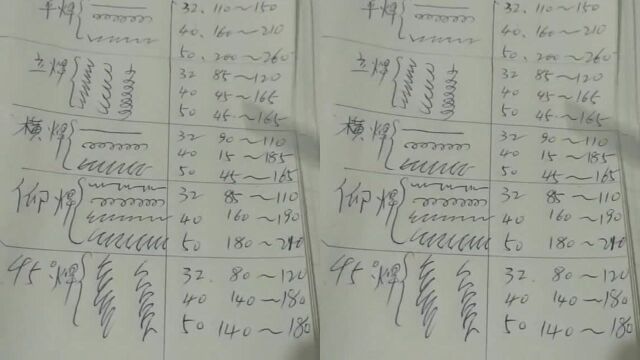 平焊 32. 110~150
40. 160~210
50. 200~260
立焊 32 85~120
40 45~165
50 45~165
横焊 32 90~110
40 15~185
50 45~165
仰焊 32 85~110
40 160~190
50 180~210
45°焊 32. 80~120
40 140~180
50 140~180
平焊 32. 110~150
40. 160~210
50. 200~260
立焊 32 85~120
40 45~165
50 45~165
横焊 32 90~110
40 15~185
50 45~165
仰焊 32 85~110
40 160~190
50 180~210
45°焊 32. 80~120
40 140~180
50 140~180